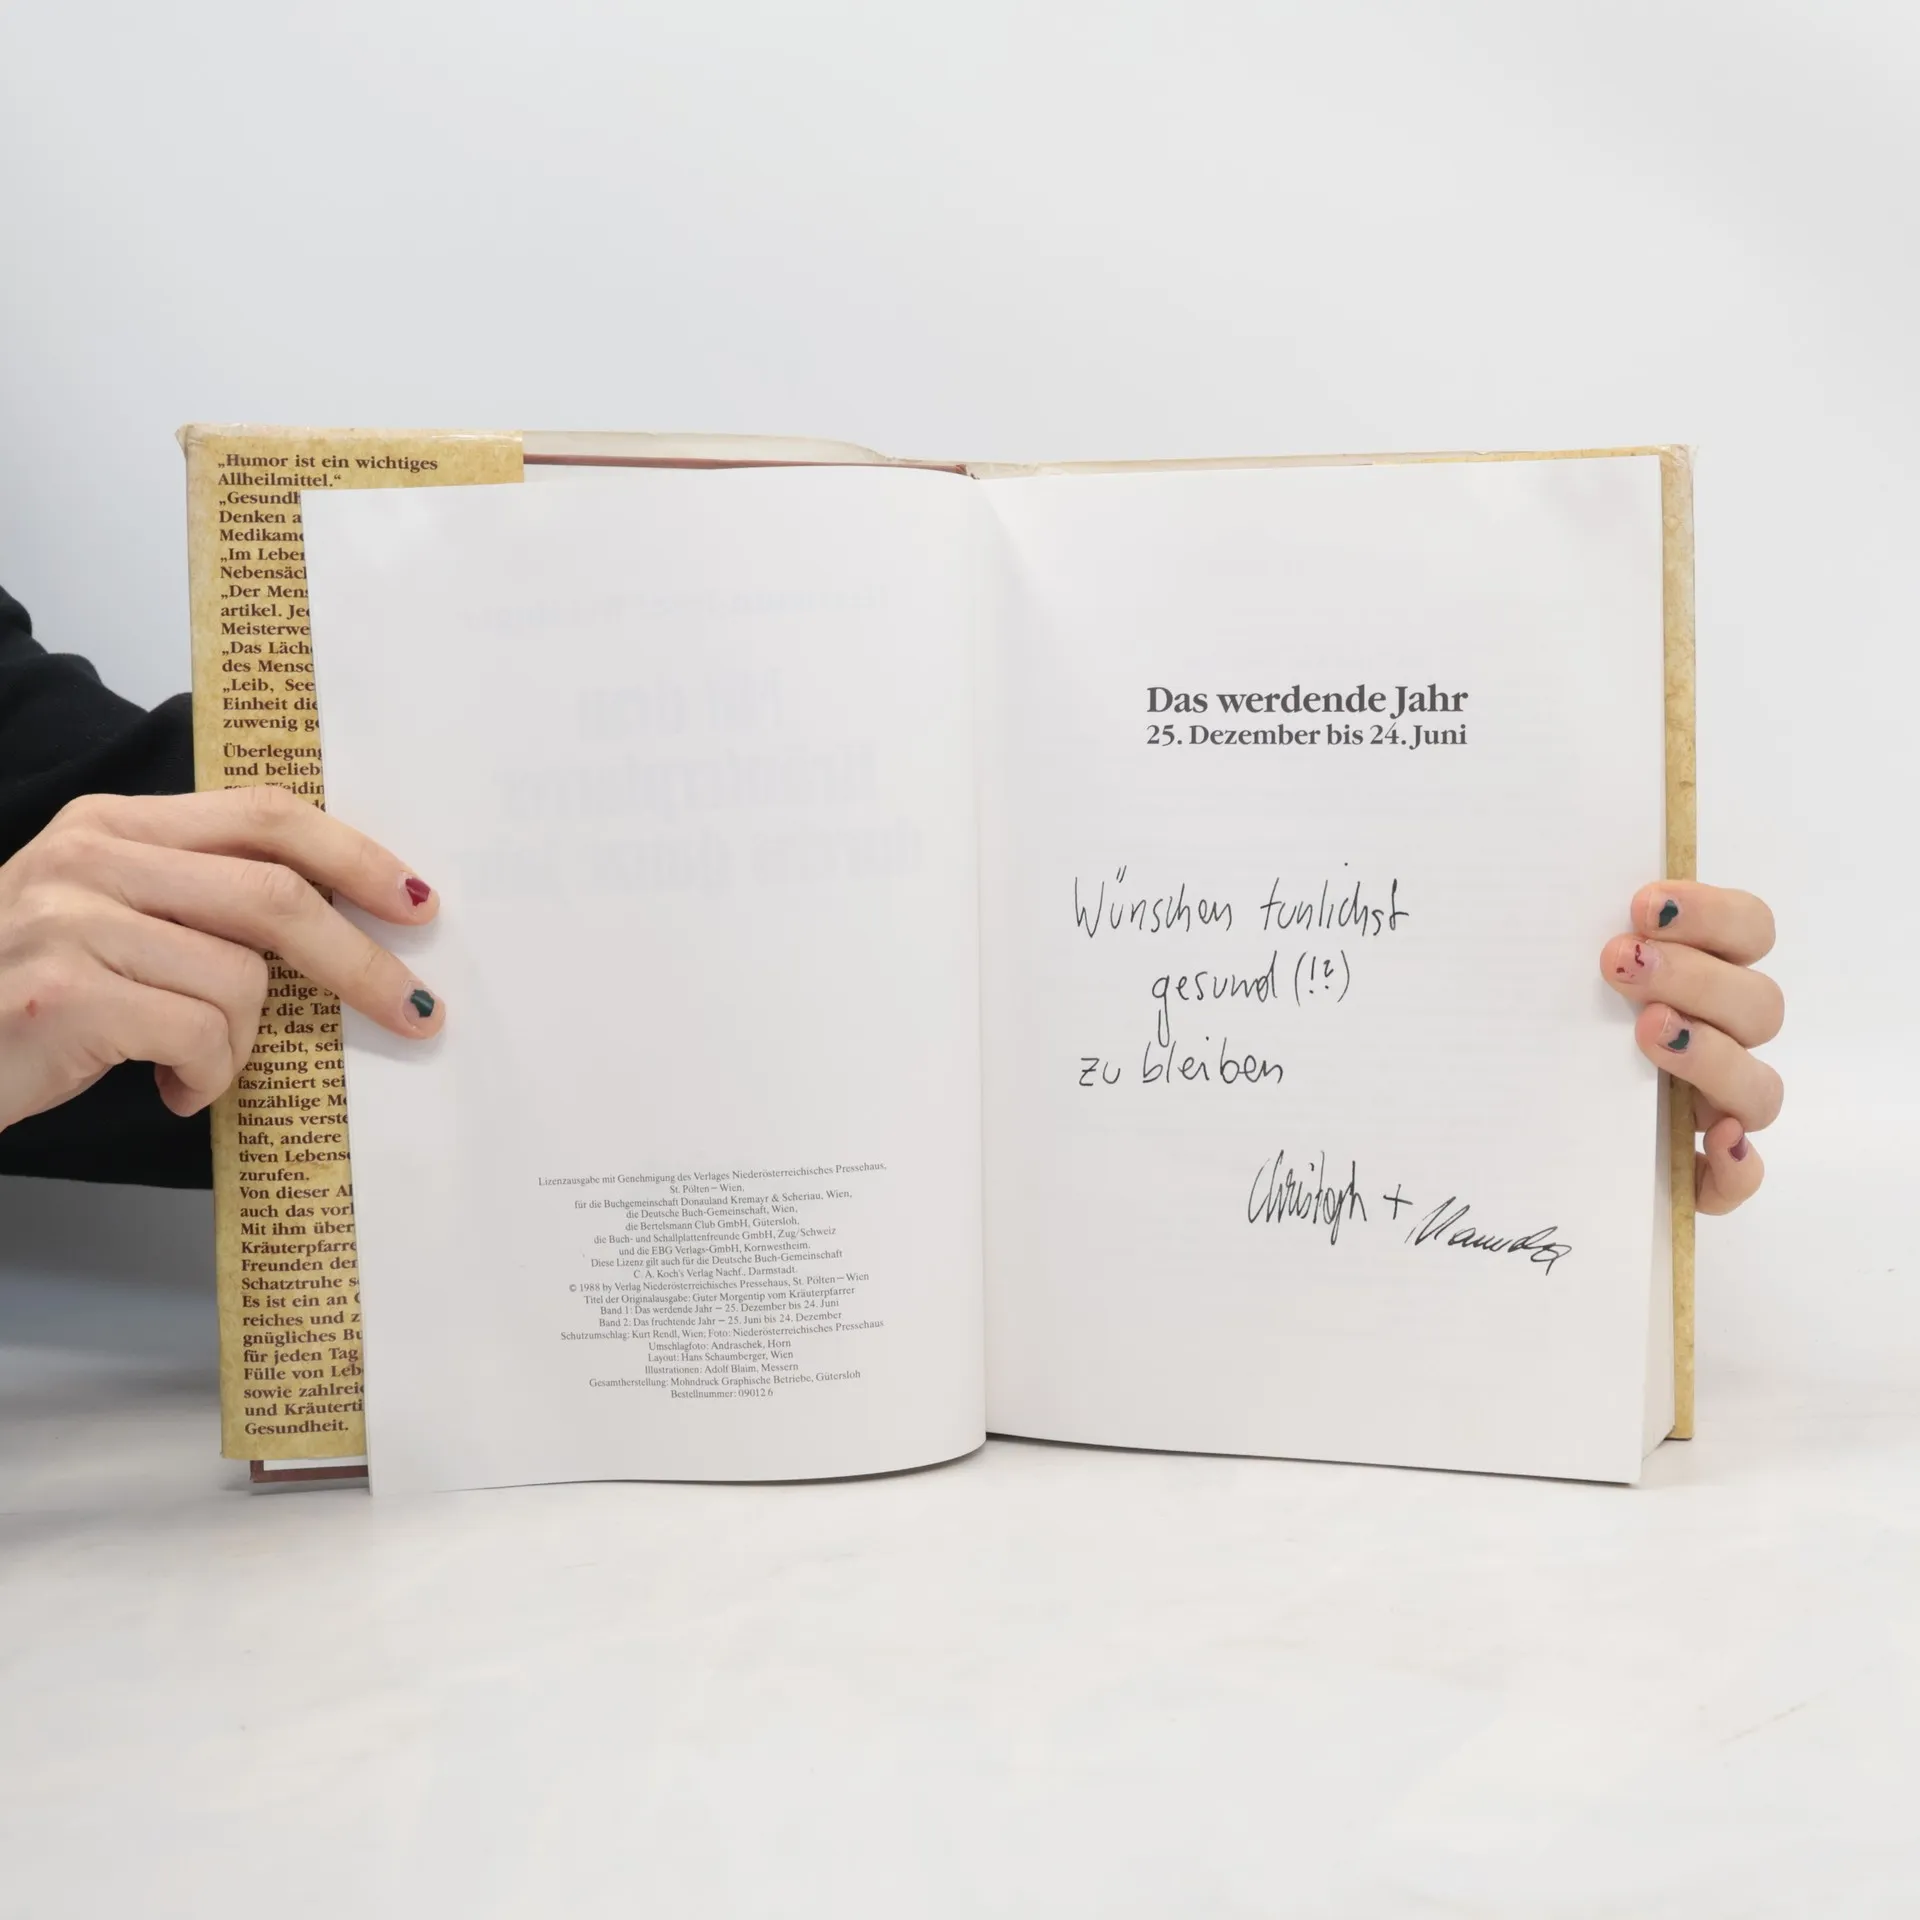 „Humor ist ein wichtiges
Allheilmittel.“
„Gesundh
Denken a
Medikame
„Im Leben
Nebensäcl
„Der Mens
artikel. Jed
Meisterwe
„Das Läche
des Mensc
„Leib, See
Einheit die
zuwenig ge
Überlegung
und belieb
Weidin
ndige
r die Tats
rt, das er
hreibt, sei
eugung ent
fasziniert sei
unzählige Me
hinaus verste
haft, andere
tiven Lebense
zurufen.
Von dieser Al
auch das vorl
Mit ihm über
Kräuterpfarre
Freunden der
Schatztruhe s
Es ist ein an G
reiches und z
gnügliches Bu
für jeden Tag
Fülle von Leb
sowie zahlreic
und Kräuterti
Gesundheit.
Lizenzausgabe mit Genehmigung des Verlages Niederösterreichisches Pressehaus,
St. Pölten – Wien,
für die Buchgemeinschaft Donauland Kremayr & Scheriau, Wien,
die Deutsche Buch-Gemeinschaft, Wien,
die Bertelsmann Club GmbH, Gütersloh,
die Buch- und Schallplattenfreunde GmbH, Zug/Schweiz
und die EBG Verlags-GmbH, Kornwestheim.
Diese Lizenz gilt auch für die Deutsche Buch-Gemeinschaft
C. A. Koch's Verlag Nachf., Darmstadt.
© 1988 by Verlag Niederösterreichisches Pressehaus, St. Pölten – Wien
Titel der Originalausgabe: Guter Morgentip vom Kräuterpfarrer
Band 1: Das werdende Jahr – 25. Dezember bis 24. Juni
Band 2: Das fruchtende Jahr – 25. Juni bis 24. Dezember
Schutzumschlag: Kurt Rendl, Wien; Foto: Niederösterreichisches Pressehaus
Umschlagfoto: Andraschek, Horn
Layout: Hans Schaumberger, Wien
Illustrationen: Adolf Blaim, Messern
Gesamtherstellung: Mohndruck Graphische Betriebe, Gütersloh
Bestellnummer: 09012 6
Das werdende Jahr
25. Dezember bis 24. Juni
Wünschen tunlichst
gesund (!?)
zu bleiben
Christoph +